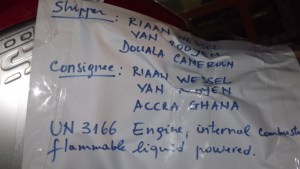 Shipper: RIAAN WESSEL
VAN ROOYEN
DOUALA CAMEROUN
Consignee: RIAAN WESSEL
VAN
ACCRA GHANA
UN 3166 Engine, internal combust
flammable liquid powered.